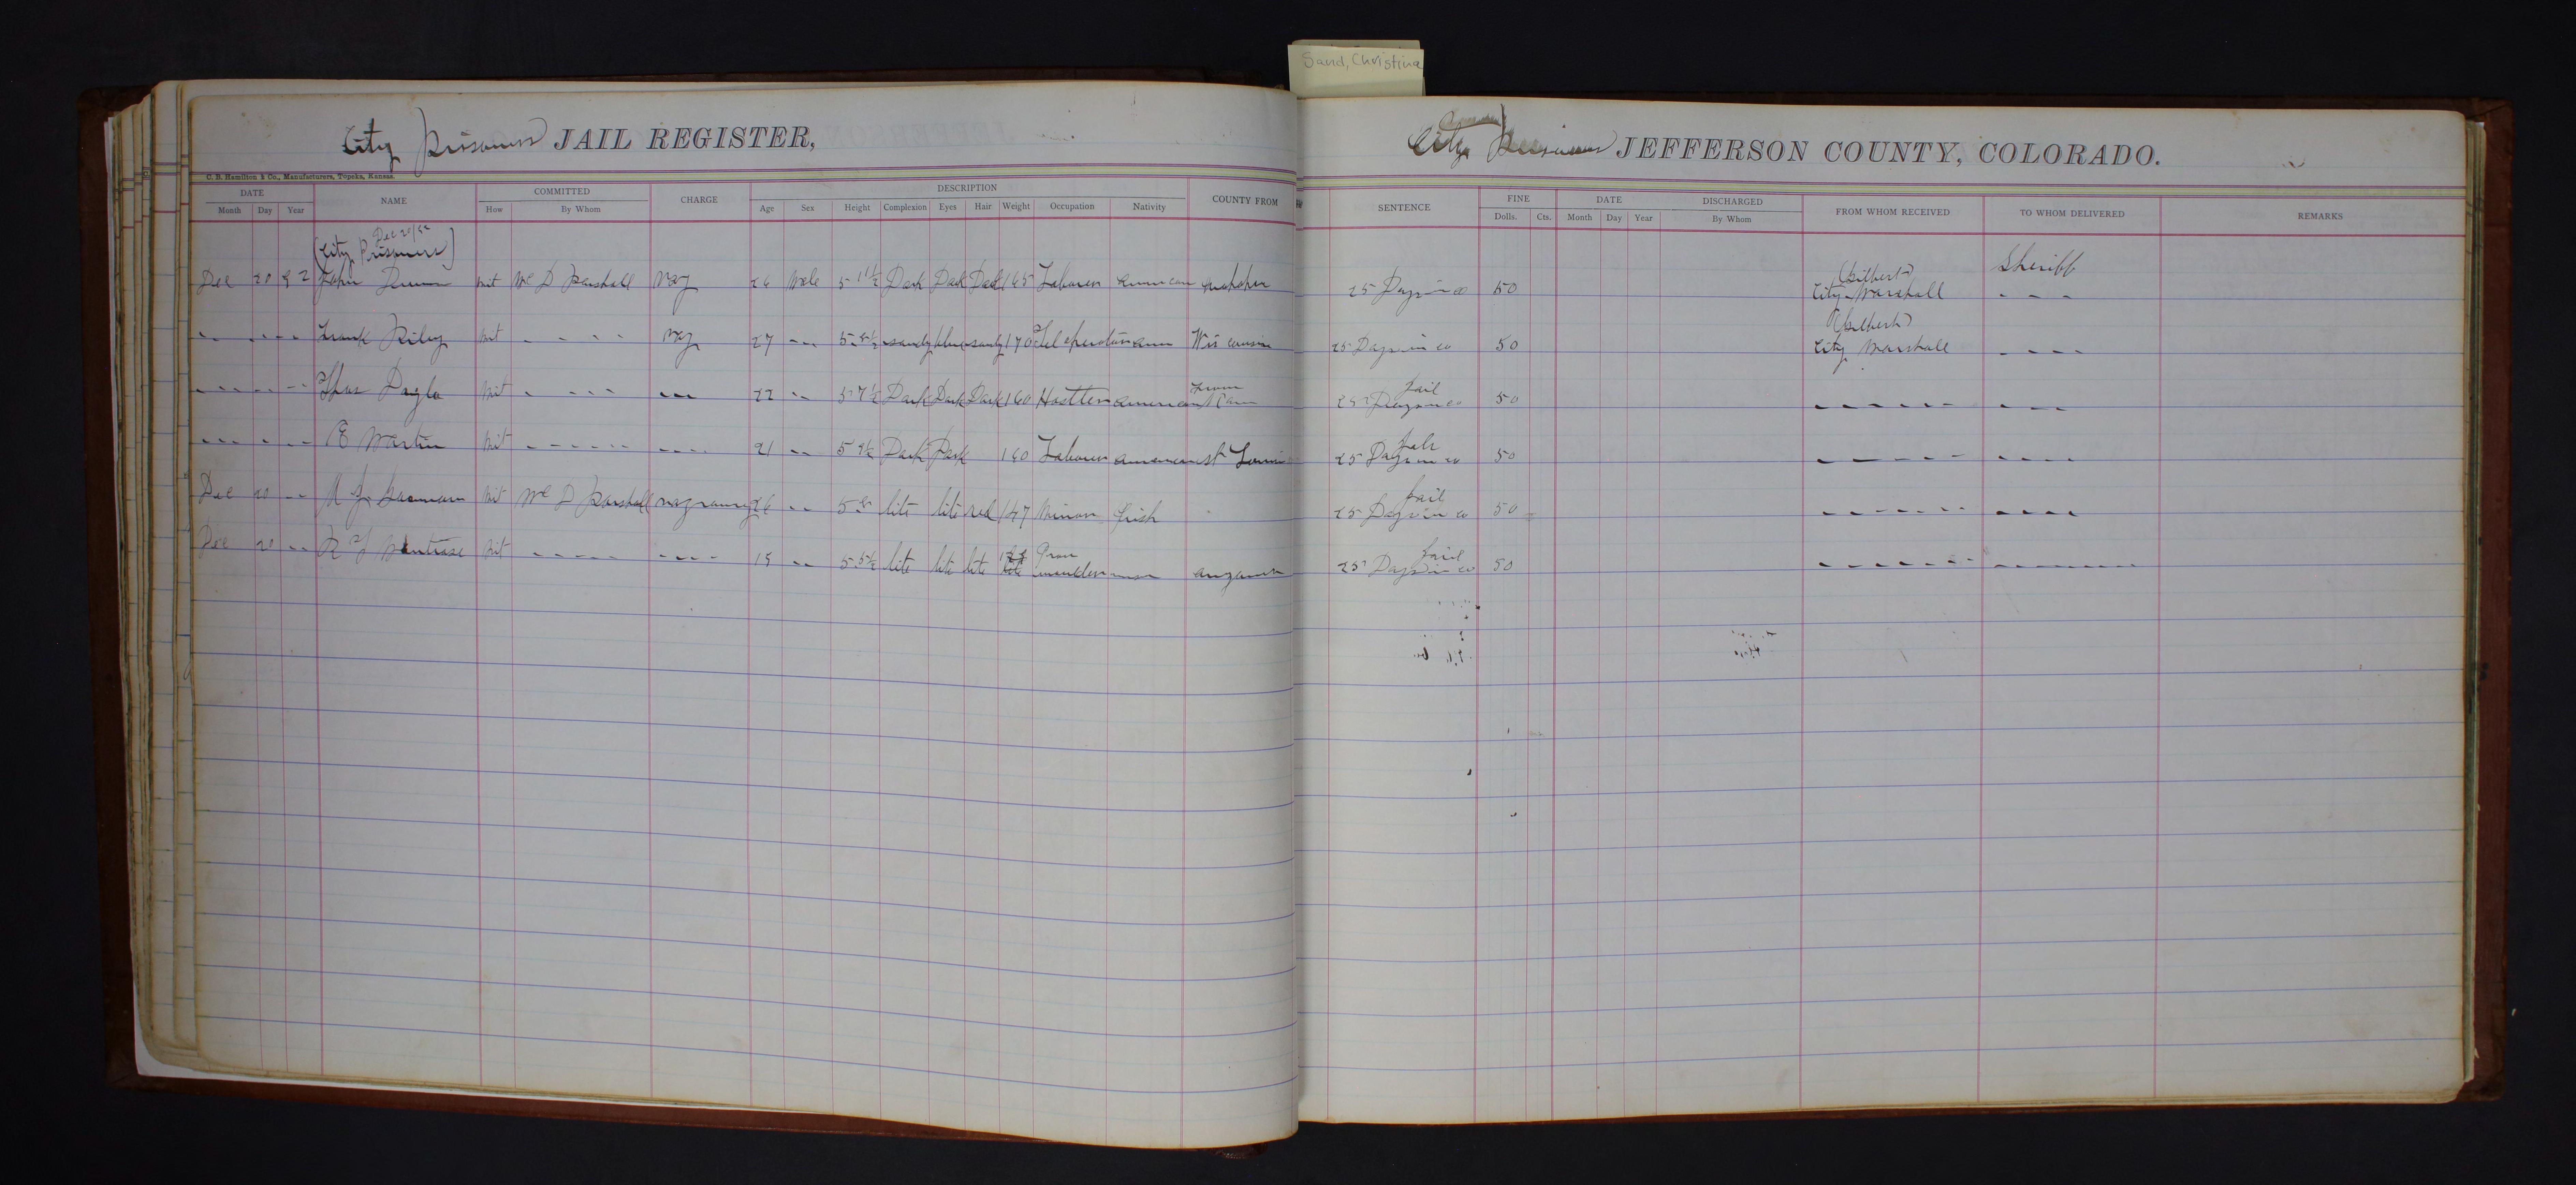 Sand, Christina
City Prisoners JAIL REGISTER,
City Prisoners JEFFERSON COUNTY, COLORADO.
C. B. Hamilton & Co., Manufacturers, Topeka, Kansas.
DATE NAME COMMITTED CHARGE DESCRIPTION COUNTY FROM
Month Day Year How By Whom Age Sex Height Complexion Eyes Hair Weight Occupation Nativity
SENTENCE FINE DATE DISCHARGED FROM WHOM RECEIVED TO WHOM DELIVERED REMARKS
Dolls. Cts. Month Day Year By Whom
Dec 20/92
(City Prisoners)
Dec 20 92 John mit Mc D Parshall vag 26 Male 5 11 1/2 Dark Dark Dark 165 Laborer American
25 Days in co 50 (Gilbert) City Marshall Sheriff - - -
- - - - - Frank Riley mit - - - - vag 27 - - 5 8 1/2 sandy blue sandy 170 Tel operator am Wis consin
25 Days in co 50 (Gilbert) City Marshall - - - -
- - - - - - Thos mit - - - - - - - 22 - - 5 7 1/2 Dark Dark Dark 160 Hostler American from
25 Days in co Jail 50 - - - - - - - - -
- - - - - - E Martin mit - - - - - - - - - - 21 - - 5 9 1/2 Dark Dark 160 Laborer American St Louis
25 Days in co Jail 50 - - - - - - - - - -
Dec 20 - - mit Mc D Parshall vagrancy 26 - - 5 8 lite lite red 147 Minor Irish
25 Days in co Jail 50 - - - - - - - - - - -
Dec 20 - - R mit - - - - - - - - - 19 - - 5 5 1/2 lite lite lite Iron moulder
25 Days in co Jail 50 - - - - - - - - - - - - -